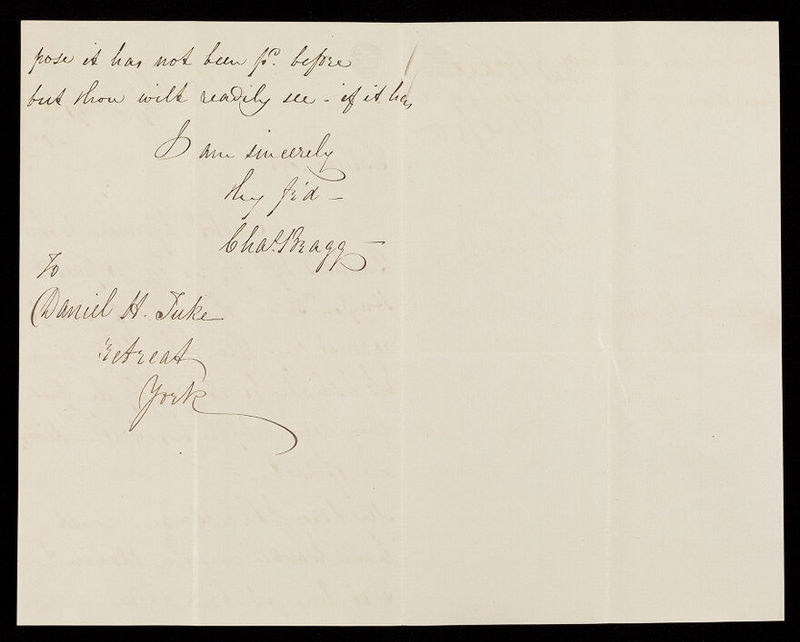 pose it has not been pd. before
but thou wilt readily see - if it has
I am sincerely
thy fr'd -
Chas. Bragg -
To
Daniel H. Tuke
Retreat
York